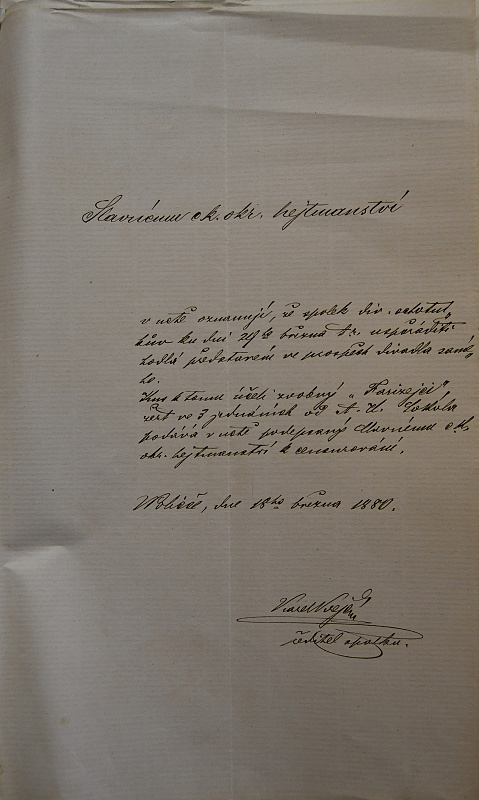 Slavnému ck. okr. hejtmanství
v úctě oznamuji, že spolek div. ochotní„
kův ku dni 29ho března t.r. uspořádati
hodlá představení ve prospěch divadla samé„
ho.
Kus k tomu účeli zvolený „Pařizejčí"
žert ve 3 jednáních od
podává v úctě podepsaný slavnému ck.
okr. hejtmanství k censurování.
dne 18ho března 1880.
Karel
ředitel spolku.